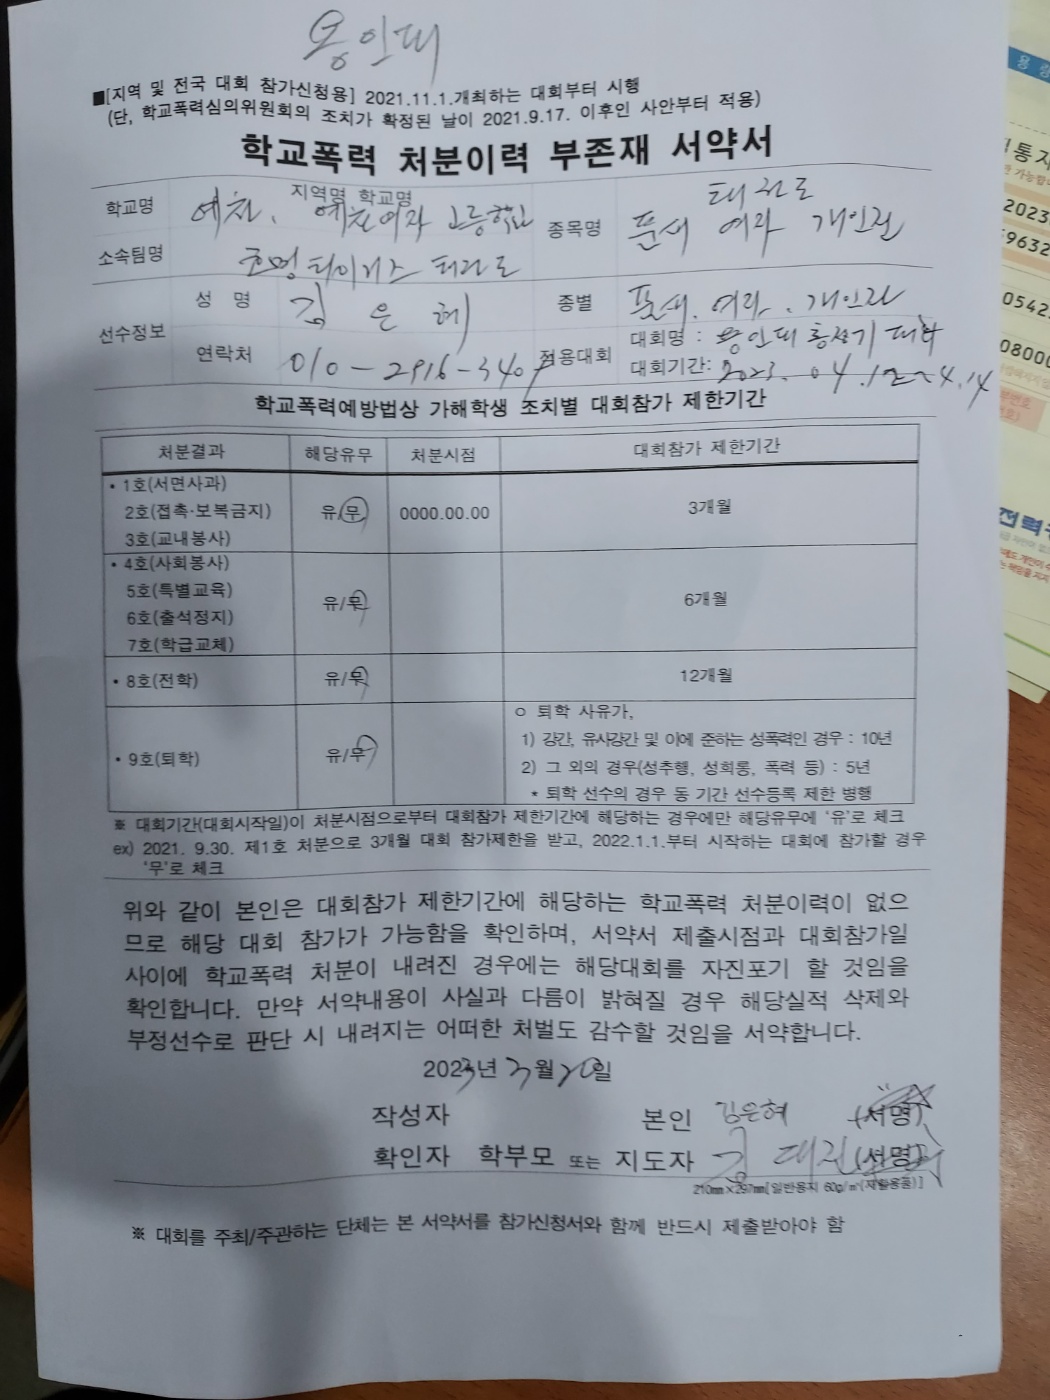 용인대
■[지역 및 전국 대회 참가신청용] 2021.11.1.개최하는 대회부터 시행
(단, 학교폭력심의위원회의 조치가 확정된 날이 2021.9.17. 이후인 사안부터 적용)
학교폭력 처분이력 부존재 서약서
학교명 지역명 학교명 예천, 예천여자 고등학교
종목명 태권도 품새 여자 개인전
소속팀명 타이거즈 태권도
선수정보
성 명 김은혜
종별 품새. 여자. 개인전
연락처 010-2916-340
적용대회 대회명 : 용인대 총장기
대회기간: 2023. 04.12~4.14
학교폭력예방법상 가해학생 조치별 대회참가 제한기간
처분결과 해당유무 처분시점 대회참가 제한기간
• 1호(서면사과)
2호(접촉·보복금지) 유/무 0000.00.00 3개월
3호(교내봉사)
• 4호(사회봉사)
5호(특별교육) 유/무 6개월
6호(출석정지)
7호(학급교체)
• 8호(전학) 유/무 12개월
• 9호(퇴학) 유/무
ㅇ 퇴학 사유가,
1) 강간, 유사강간 및 이에 준하는 성폭력인 경우 : 10년
2) 그 외의 경우(성추행, 성희롱, 폭력 등) : 5년
* 퇴학 선수의 경우 동 기간 선수등록 제한 병행
※ 대회기간(대회시작일)이 처분시점으로부터 대회참가 제한기간에 해당하는 경우에만 해당유무에 '유'로 체크
ex) 2021. 9.30. 제1호 처분으로 3개월 대회 참가제한을 받고, 2022.1.1.부터 시작하는 대회에 참가할 경우
'무'로 체크
위와 같이 본인은 대회참가 제한기간에 해당하는 학교폭력 처분이력이 없으
므로 해당 대회 참가가 가능함을 확인하며, 서약서 제출시점과 대회참가일
사이에 학교폭력 처분이 내려진 경우에는 해당대회를 자진포기 할 것임을
확인합니다. 만약 서약내용이 사실과 다름이 밝혀질 경우 해당실적 삭제와
부정선수로 판단 시 내려지는 어떠한 처벌도 감수할 것임을 서약합니다.
2023년 3월 20일
작성자 본인 김은혜 (서명)
확인자 학부모 또는 지도자 김대진 (서명)
210㎜×297㎜[일반용지 60g/㎡(재활용품)]
※ 대회를 주최/주관하는 단체는 본 서약서를 참가신청서와 함께 반드시 제출받아야 함